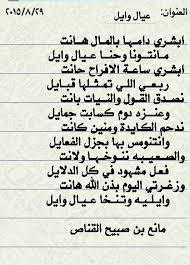 العنوان: عيال وايل
٢٠١٥/٨/٢٩
ابشري دامها بالمال هانت
مانتونا وحنا عيال وايل
ابشري ساعة الافراح حانت
ربعي اللي تمثلها قبايل
نصدق القول والنيات بانت
وعنزه دوم كسابت جمايل
ندحم الكايدة ومنين كانت
وانتنومس بها بجزل الفعايل
والصعيبه نتوخها ولانت
فعل مشهود في كل الدلايل
وزغرتي اليوم بذن الله هانت
وايليه وتنخا عيال وايل
مانع بن صبيح القناص